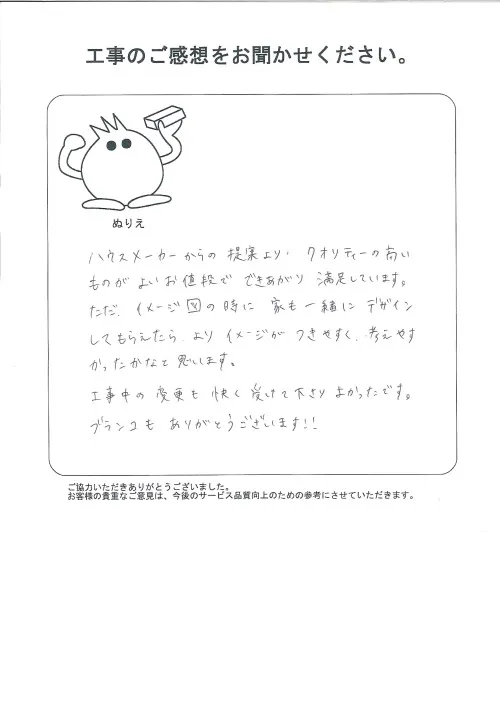 工事のご感想をお聞かせください。
ぬりえ
ハウスメーカーからの提案より、クオリティーの高い
ものがよいお値段でできあがり満足しています。
ただ、イメージ図の時に家も一緒にデザイン
してもらえたら、よりイメージがつきやすく、考えやす
かったかなと思います。
工事中の変更も快く受けて下さりよかったです。
ブランコもありがとうございます!!
ご協力いただきありがとうございました。
お客様の貴重なご意見は、今後のサービス品質向上のための参考にさせていただきます。